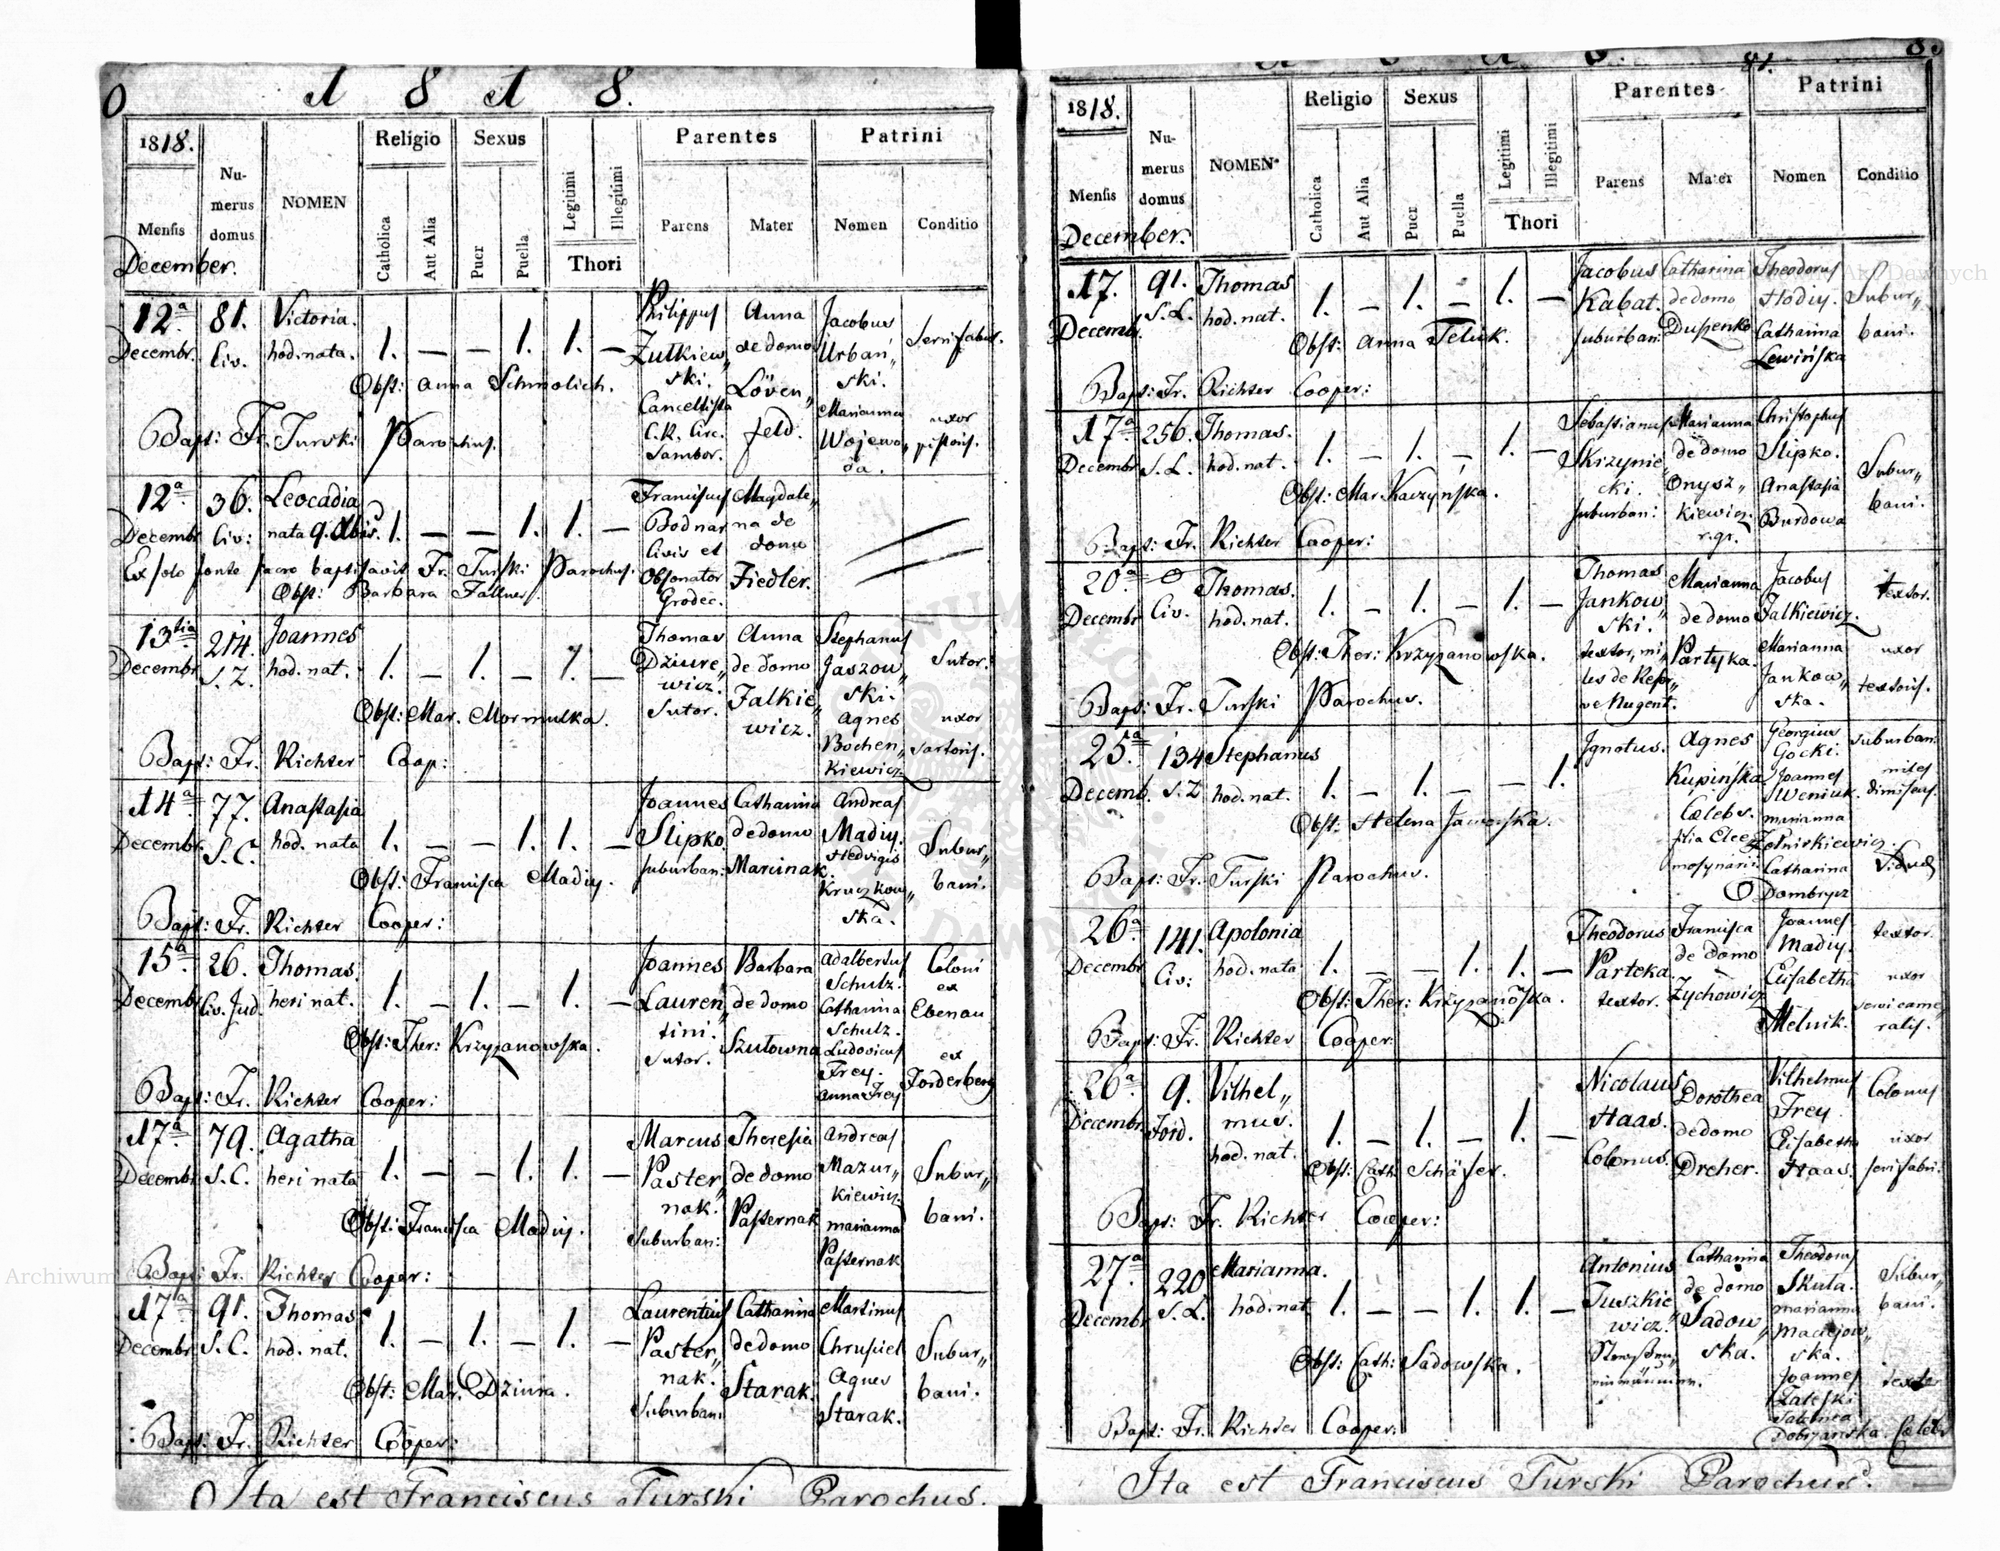 1818.
1818.
Mensis
Numerus domus
NOMEN
Religio
Catholica
Aut Alia
Sexus
Puer
Puella
Legitimi
Illegitimi
Thori
Parentes
Parens
Mater
Patrini
Nomen
Conditio
December.
12a Decembr.
81. Civ.
Victoria. hod. nata.
1. — — 1. 1. —
Philippus Zutkiew„ ski. Cancellista C. R. Circ. Sambor.
Anna de domo Löven„ feld.
Jacobus Urbań„ ski.
Marianna Wojewo„ da.
uxor pistoris.
Obst: Anna Schmolich.
Bapt: Fr. Turski Parochus.
12a Decembr.
36. Civ:
Leocadia nata 9. Xbris.
1. — — 1. 1. —
Franciscus Bodnar Civis et Obsonator Grodec.
Magdale„ na de domo Fiedler.
Ex solo fonte sacro baptisavit Fr. Turski Parochus.
Obst: Barbara Fallner.
13tia Decembr.
214. S. Z.
Joannes hod. nat.
1. — 1. — 1. —
Thomas Dziure„ wicz. Sutor.
Anna de domo Falkie„ wicz.
Stephanus Jaszow„ ski.
Sutor.
Agnes Bochen„ kiewicz.
uxor sartoris.
Obst: Mar. Mormulka.
Bapt: Fr. Richter Coop:
14a Decembr.
77. S. C.
Anastasia hod. nata
1. — — 1. 1. —
Joannes Slipko. suburban:
Catharina de domo Marcinak.
Andreas Madiy.
Hedvigis Kruczkow„ ska.
Subur„ bani.
Obst: Francisca Madiy.
Bapt: Fr. Richter Cooper:
15a Decembr
26. Civ. Jud.
Thomas heri nat.
1. — 1. — 1. —
Joannes Lauren„ tini. Sutor.
Barbara de domo Szutowna
Adalbertus Schulz.
Catharina Schulz.
Ludovicus Frey.
Anna Frey
Coloni ex Ebenau
ex Forderberg
Obst: Ther: Krzyzanowska.
Bapt: Fr. Richter Cooper:
17a Decembr
79. S. C.
Agatha heri nata
1. — — 1. 1. —
Marcus Paster„ nak. Suburban:
Theresia de domo Pasternak
Andreas Mazur„ kiewicz.
Marianna Pasternak
Subur„ bani.
Obst: Francisca Madiy.
Bapt: Fr. Richter Cooper:
17a Decembr.
91. S. C.
Thomas hod. nat.
1. — 1. — 1. —
Laurentius Paster„ nak. Suburban:
Catharina de domo Starak.
Martinus Chrupiel
Agnes Starak.
Subur„ bani.
Obst: Mar. Dziura.
Bapt: Fr. Richter Cooper:
Ita est Franciscus Turski Parochus.
81.
1818.
Mensis
Numerus domus
NOMEN
Religio
Catholica
Aut Alia
Sexus
Puer
Puella
Legitimi
Illegitimi
Thori
Parentes
Parens
Mater
Patrini
Nomen
Conditio
December.
17. Decemb.
91. S. L.
Thomas hod. nat.
1. — 1. — 1. —
Jacobus Kabat. suburban:
Catharina de domo Dusenko
Theodorus Hodiy.
Catharina Lewińska
Subur„ bani.
Obst: Anna Teluk.
Bapt: Fr. Richter Cooper:
17a Decembr
256. S. L.
Thomas. hod. nat.
1. — 1. — 1. —
Sebastianus Skrzynie„ cki. suburban:
Marianna de domo Onysz„ kiewicz. r. gr.
Christophus Slipko.
Anastasia Burdowa
Subur„ bani.
Obst: Mar. Kaczyńska.
Bapt: Fr. Richter Cooper:
20a Decembr
Civ.
Thomas. hod. nat.
1. — 1. — 1. —
Thomas Jankow„ ski. textor, mi„ les de Nugent.
Marianna de domo Partyka.
Jacobus Falkiewicz.
textor.
Marianna Jankow„ ska.
uxor textoris.
Obst: Ther: Krzyzanowska.
Bapt: Fr. Turski Parochus.
25a Decemb.
134 S. Z
Stephanus hod. nat.
1. — 1. — — 1.
Ignotus.
Agnes Kupińska Cælebs. filia Elee„ mosynarii
Georgius Gocki.
suburban:
Joannes Weniuk.
miles dimissus.
Marianna Zołnirkiewicz.
Catharina Dombrycz
Obst: Helena Jaworska.
Bapt: Fr. Turski Parochus.
26a Decembr
141. Civ:
Apolonia hod. nata
1. — — 1. 1. —
Theodorus Parteka. textor.
Francisca de domo Zychowicz
Joannes Madiy.
textor.
Elisabetha Melnik.
uxor
Obst: Ther: Krzyzanowska.
Bapt: Fr. Richter Cooper:
26a Decembr
9. Ford.
Vilhel„ mus. hod. nat.
1. — 1. — 1. —
Nicolaus Haas. Colonus.
Dorothea de domo Dreher.
Vilhelmus Frey
Colonus
Elisabetha Haas.
uxor serifabri.
Obst: Cath: Schäfer.
Bapt: Fr. Richter Cooper:
27a Decembr
220 S. L.
Marianna. hod. nat
1. — — 1. 1. —
Antonius Tuszkie„ wicz.
Catharina de domo Sadow„ ska.
Theodorus Skala.
Marianna Maciejow„ ska.
Subur„ bani.
Joannes Zaleski
textor
Dobrzanska. Cæleb
Obst: Cath: Sadowska.
Bapt: Fr. Richter Cooper:
Ita est Franciscus Turski Parochus.